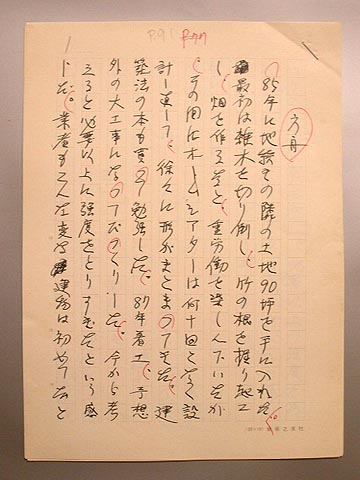 P.91
85年に地続きの隣の土地90坪を手に入れた。
最初は雑木を切り倒し、竹の根を掘り起こ
し、畑を作るなど、重労働を楽しんでいたが、
その間にホームシアターは何十回となく設
計し直して、徐々に形がまとまってきた。建
築法の本も買って勉強した。87年着工、予想
外の大工事になってびっくりした。今から考
えると必要以上に強度をとりすぎたという感
じだ。業者もこんな変な建物は初めてだと